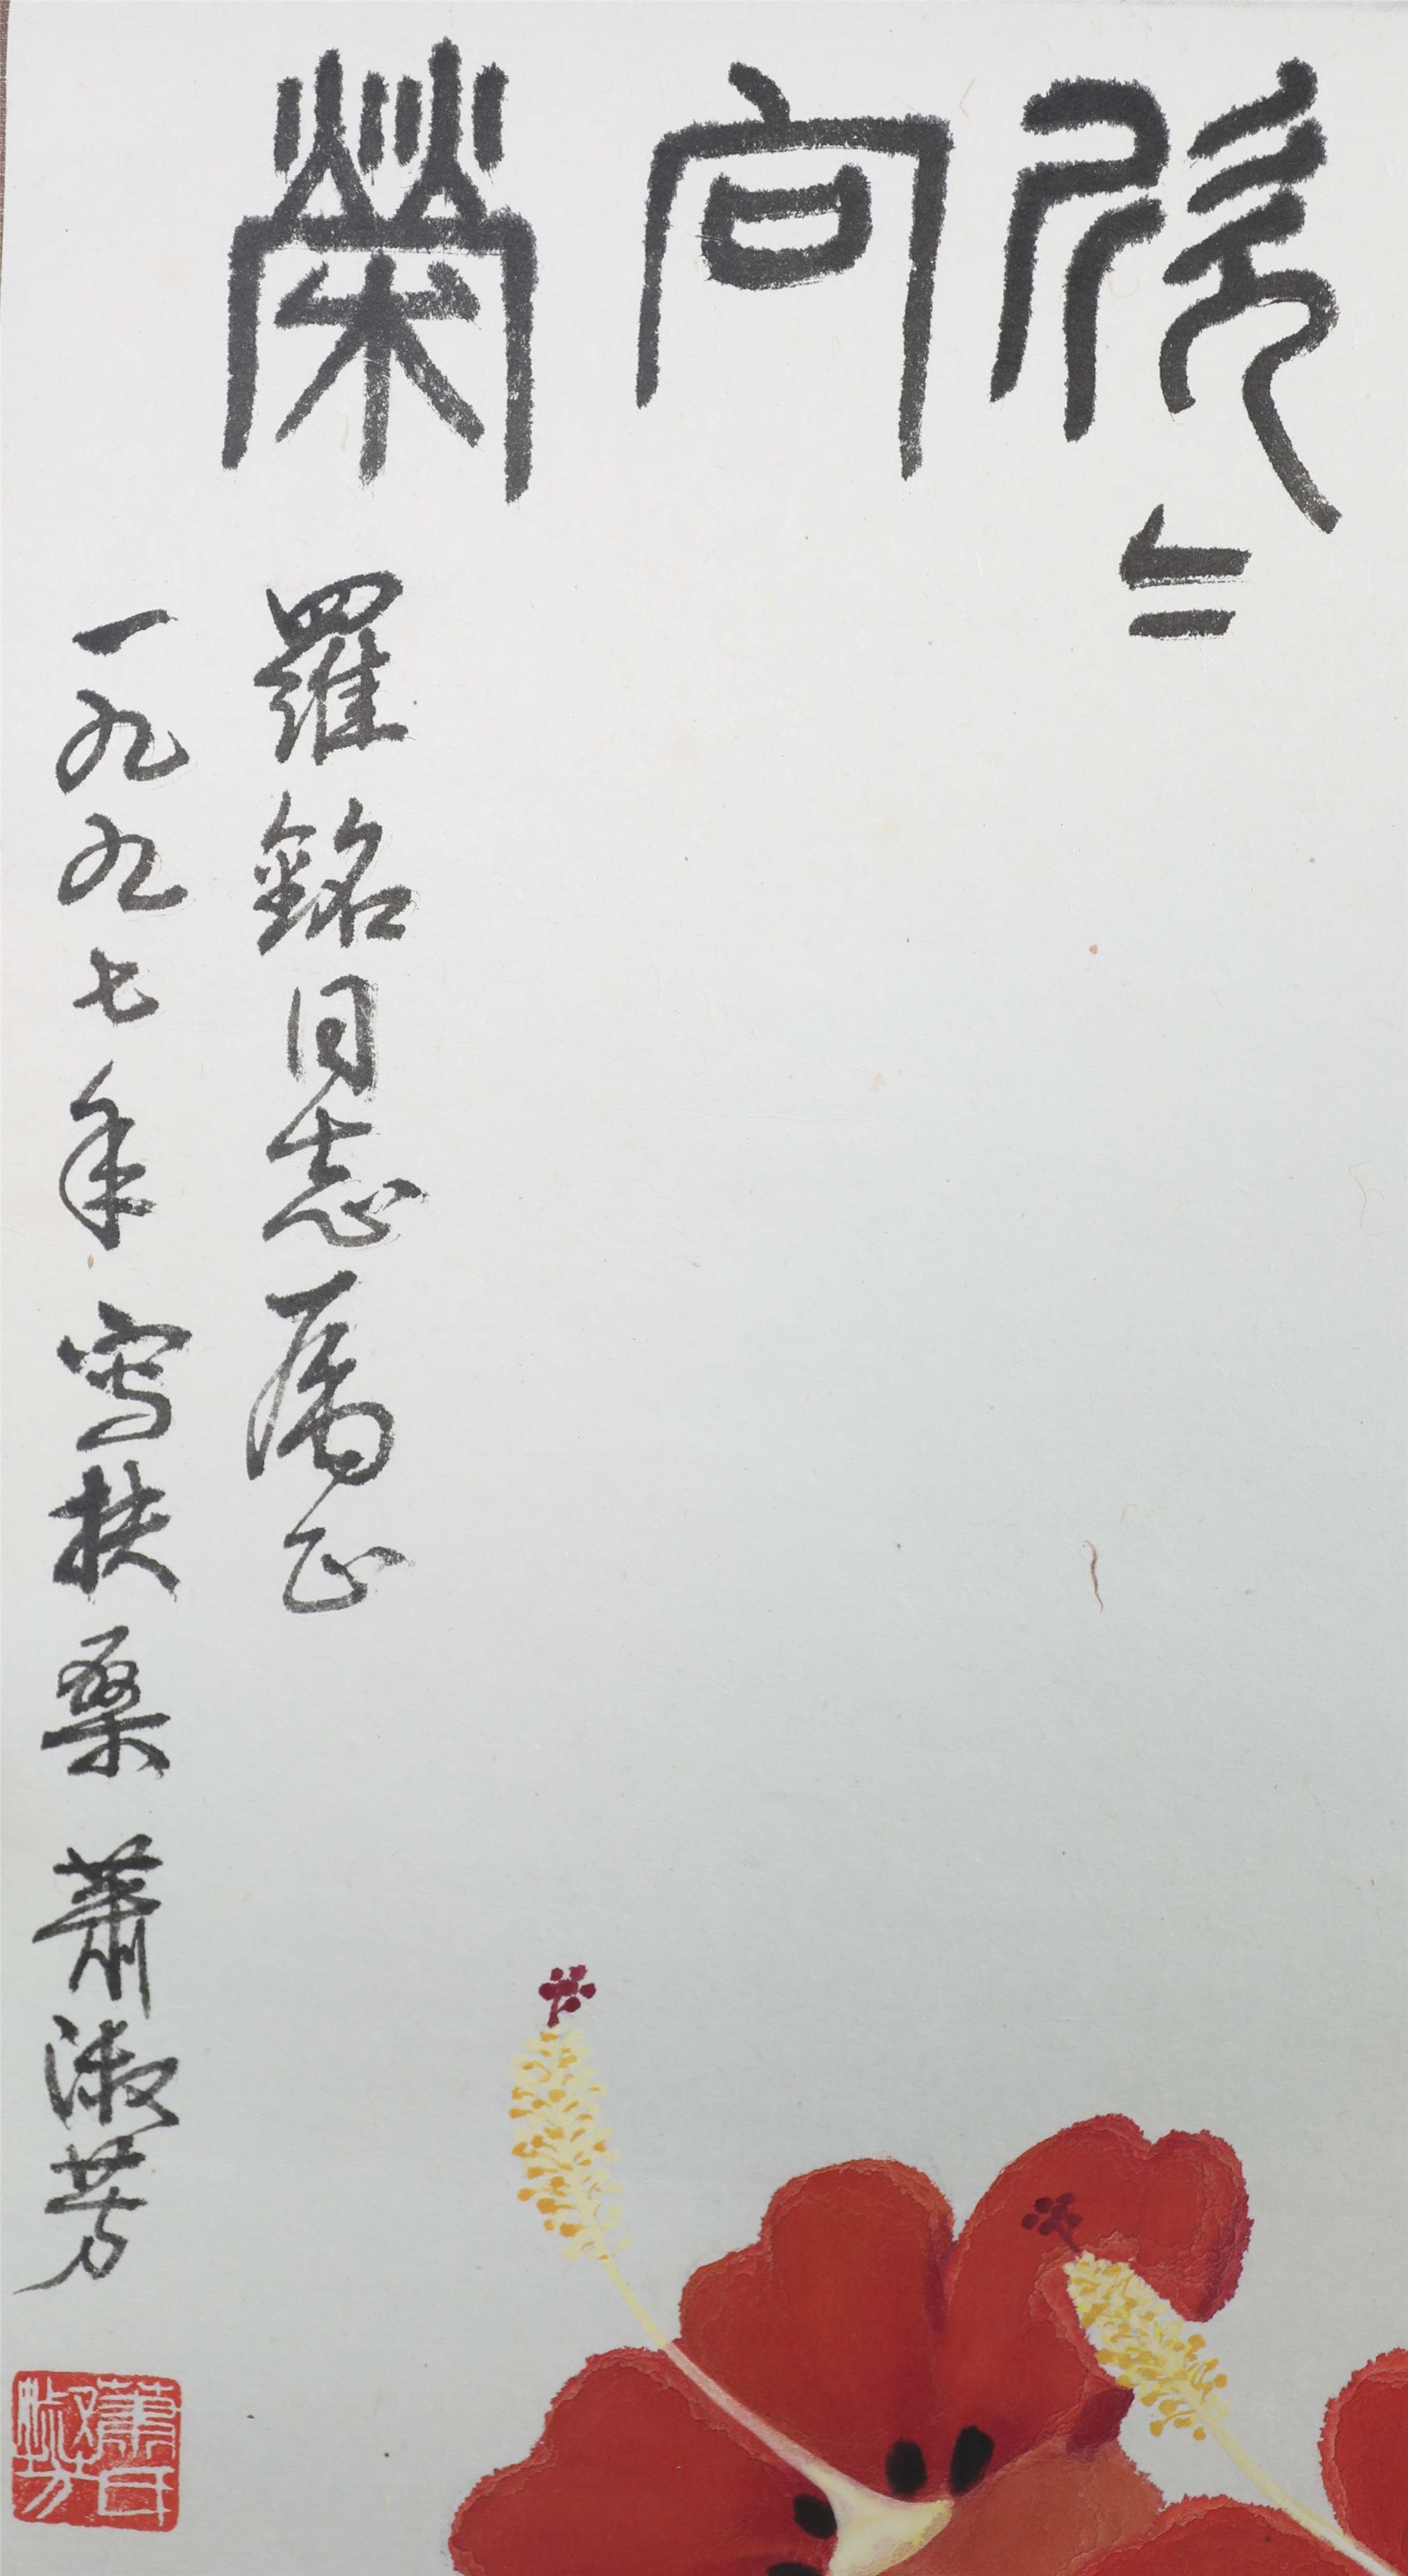 欣〻向榮
羅銘同志屬正
一九九七年寫扶桑 蕭淑芳
蕭氏淑芳